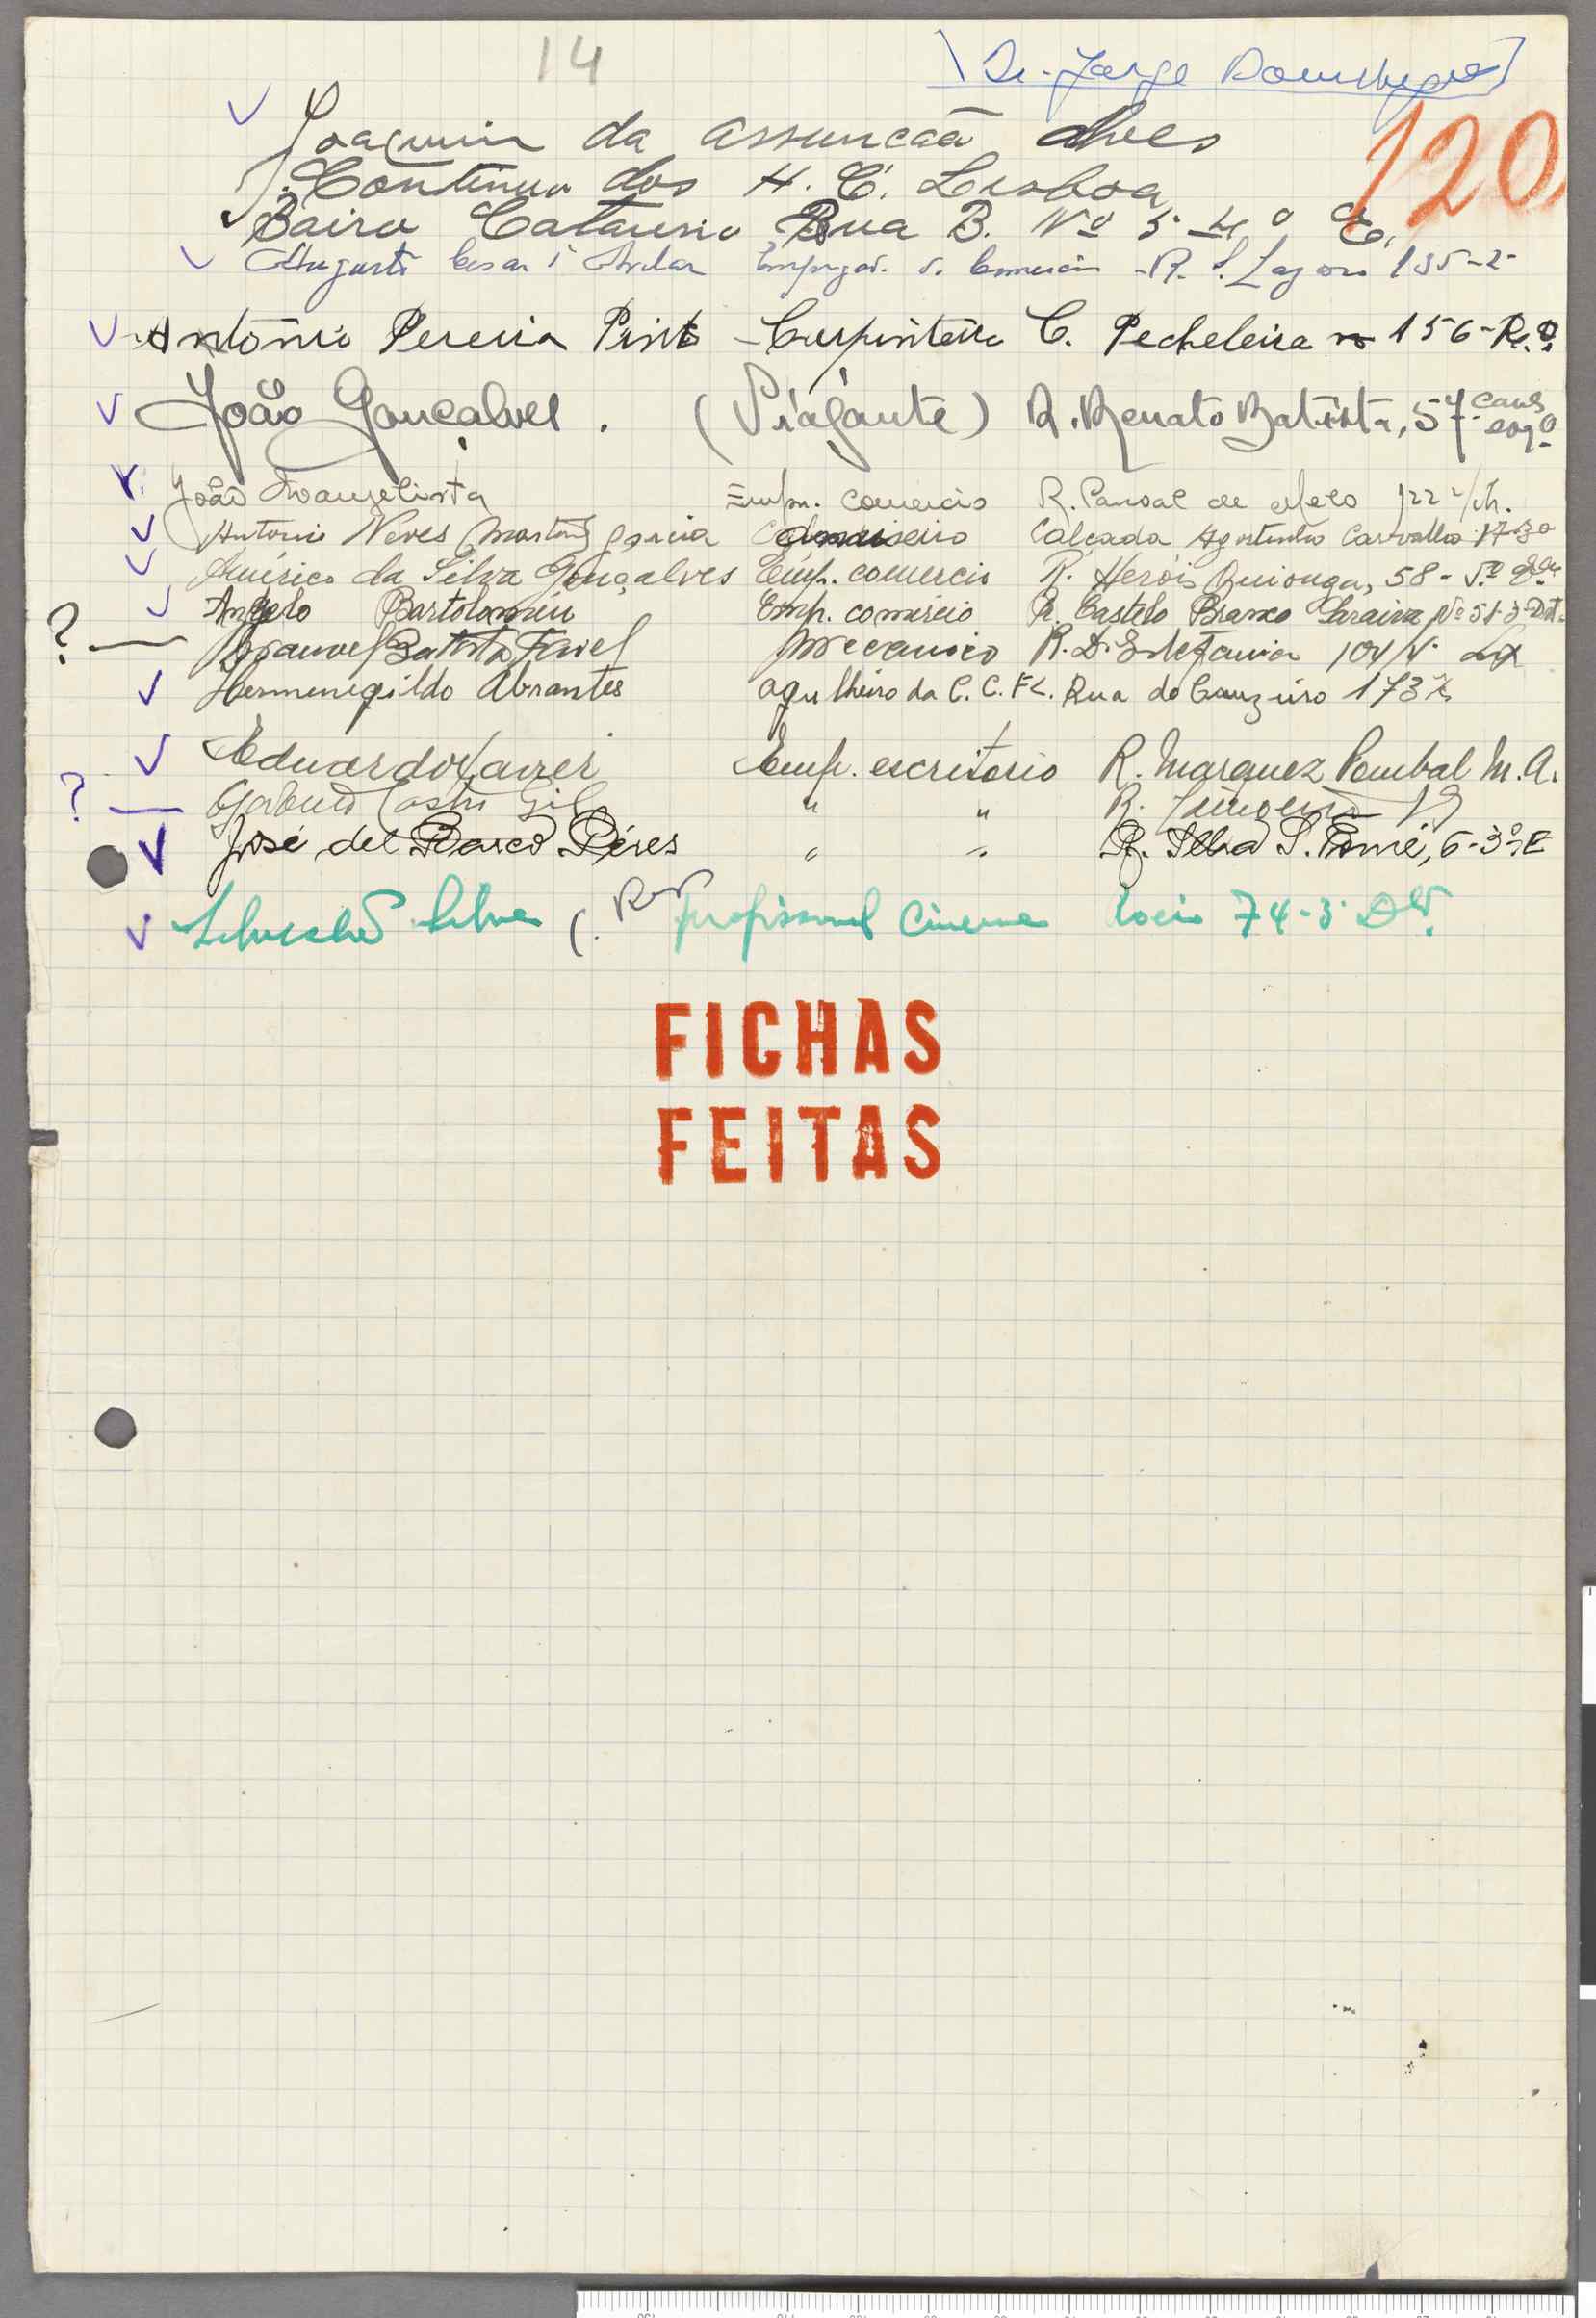 14
Dr. Jorge
120
Joaquim da assuncaã alves
Continuo dos H. C. Lisboa
Bairo Rua B. Nº 5-4º E.
Augusto Cesar Avelar Empregad. Comercio - R. S. Lazaro 135-2-
Antonio Pereira Pinto - Carpinteiro C. Pecheleira nº 156-R.
João Gonçalves. (Viajante) R. Renato Batista, 57
João Evangelista Empr. comercio R. Pascoal de Melo 122
Antonio Neves Martins Garcia Calçada Agostinho Carvalho 17-3º
Américo da Silva Gonçalves Emp. comercio R. Herois Quionga, 58-
Angelo Bartolomeu Emp. comércio R. Castelo Branco Saraiva Nº 51-3-Dt.
? — Manuel Batista Mecanico R. D. Estefania 104
Hermenegildo Abrantes agulheiro da C. C. F. L. Rua do Cruzeiro 173
Eduardo Xavier Emp. escritorio R. Marquez Pombal M. A.
? — Castro Gil " " R.
José del Barco Péres " " R. Ilha S. Tomé, 6-3º-E
Silva ( profissional Cinema Rocio 74-3º Dt.
FICHAS
FEITAS